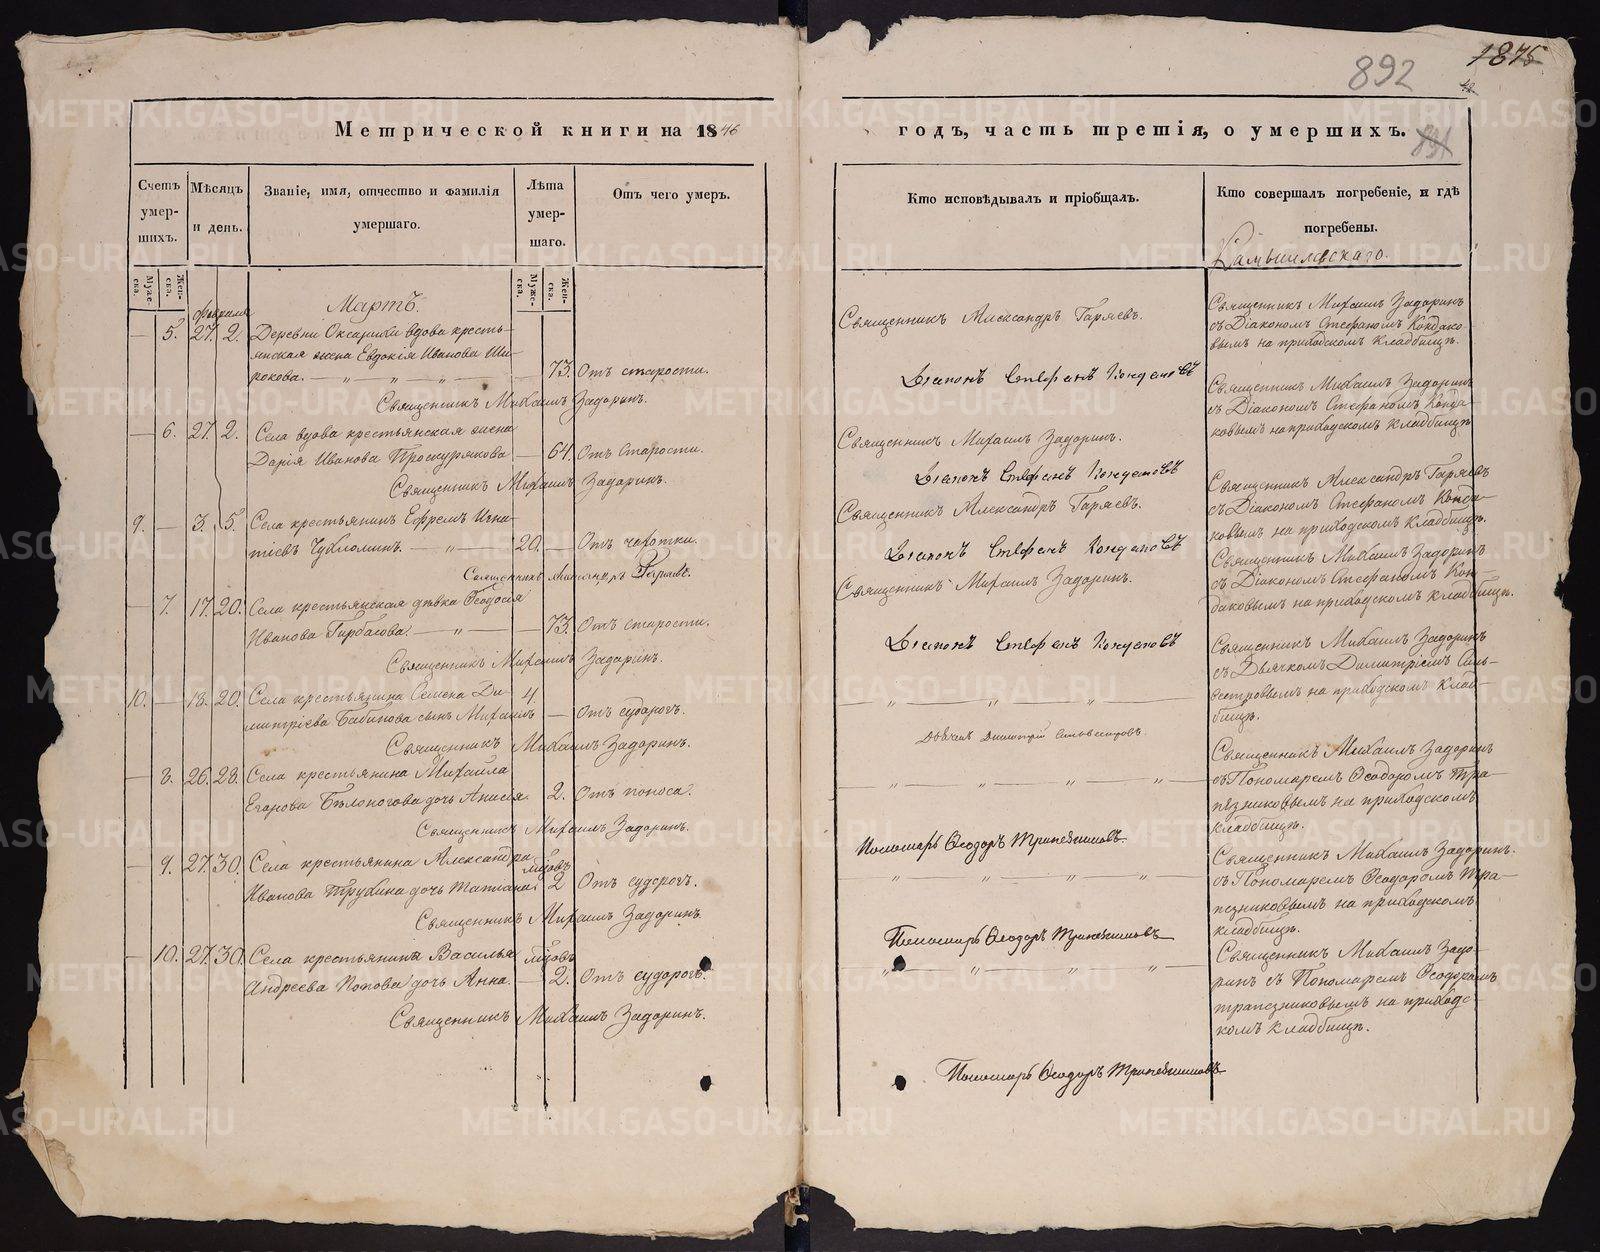 892
1875
Метрической книги на 1846
годъ, часть третія, о умершихъ.
Счетъ умер-шихъ.
Мѣсяцъ и день.
Званіе, имя, отчество и фамилія умершаго.
Лѣта умер-шаго.
Отъ чего умер.
Кто исповѣдывалъ и пріобщалъ.
Кто совершалъ погребеніе, и гдѣ погребены.
Муже-ска.
Жен-ска.
Муже-ска.
Жен-ска.
Февраля
Мартъ.
— 5. 27. 2. Деревни Оксарихи вдова кресть-
янская жена Евдокія Иванова Ши-
рокова. — 73. Отъ старости.
Священникъ Михаилъ Задоринъ.
— 6. 27. 2. Села вдова крестьянская жена
Дарія Иванова Проскурякова — 64. Отъ старости.
Священникъ Михаилъ Задоринъ.
9. — 3. 5. Села крестьянинъ Ефремъ Игна-
тіевъ Чухломинъ. — 20. — Отъ чахотки.
Священникъ Александръ Гаряевъ.
— 7. 17. 20. Села крестьянская дѣвка Ѳеодосія
Иванова Гирбасова. — 73. Отъ старости.
Священникъ Михаилъ Задоринъ.
10. — 18. 20. Села крестьянина Семена Ди-
митріева Бабинова сынъ Михаилъ 4 — Отъ судорогъ.
Священникъ Михаилъ Задоринъ.
— 8. 26. 28. Села крестьянина Михаила
Егорова Бѣлоногова дочь Анисія. 2. Отъ поноса.
Священникъ Михаилъ Задоринъ.
— 9. 27. 30. Села крестьянина Александра
Иванова Трубина дочь Татіана. 2 Отъ судорогъ.
Священникъ Михаилъ Задоринъ.
— 10. 27. 30. Села крестьянина Василья
Андреева Попова дочь Анна. — 2. Отъ судорогъ.
Священникъ Михаилъ Задоринъ.
Священникъ Александръ Гаряевъ.
Діаконъ Стефанъ Кондаковъ
Священникъ Михаилъ Задоринъ.
Діаконъ Стефанъ Кондаковъ
Священникъ Александръ Гаряевъ.
Діаконъ Стефанъ Кондаковъ
Священникъ Михаилъ Задоринъ.
Діаконъ Стефанъ Кондаковъ
Дьячекъ Димитрій Сильвестровъ.
Пономарь Ѳеодоръ Трапезниковъ.
Пономарь Ѳеодоръ Трапезниковъ
Пономарь Ѳеодоръ Трапезниковъ
Камышловскаго.
Священникъ Михаилъ Задоринъ
съ Діакономъ Стефаномъ Кондако-
вымъ на приходскомъ кладбищѣ.
Священникъ Михаилъ Задоринъ
съ Діакономъ Стефаномъ Конда-
ковымъ на приходскомъ кладбищѣ
Священникъ Александръ Гаряевъ
съ Діакономъ Стефаномъ Конда-
ковымъ на приходскомъ кладбищѣ.
Священникъ Михаилъ Задоринъ
съ Діакономъ Стефаномъ Кон-
даковымъ на приходскомъ кладбищѣ.
Священникъ Михаилъ Задоринъ
съ Дьячкомъ Димитріемъ Силь-
вестровымъ на приходскомъ клад-
бищѣ.
Священникъ Михаилъ Задоринъ
съ Пономаремъ Ѳеодоромъ Тра-
пезниковымъ на приходскомъ
кладбищѣ.
Священникъ Михаилъ Задоринъ.
съ Пономаремъ Ѳеодоромъ Тра-
пезниковымъ на приходскомъ
кладбищѣ.
Священникъ Михаилъ Задо-
ринъ съ Пономаремъ Ѳеодоромъ
трапезниковымъ на приходс-
комъ кладбищѣ.
METRIKI.GASO-URAL.RU